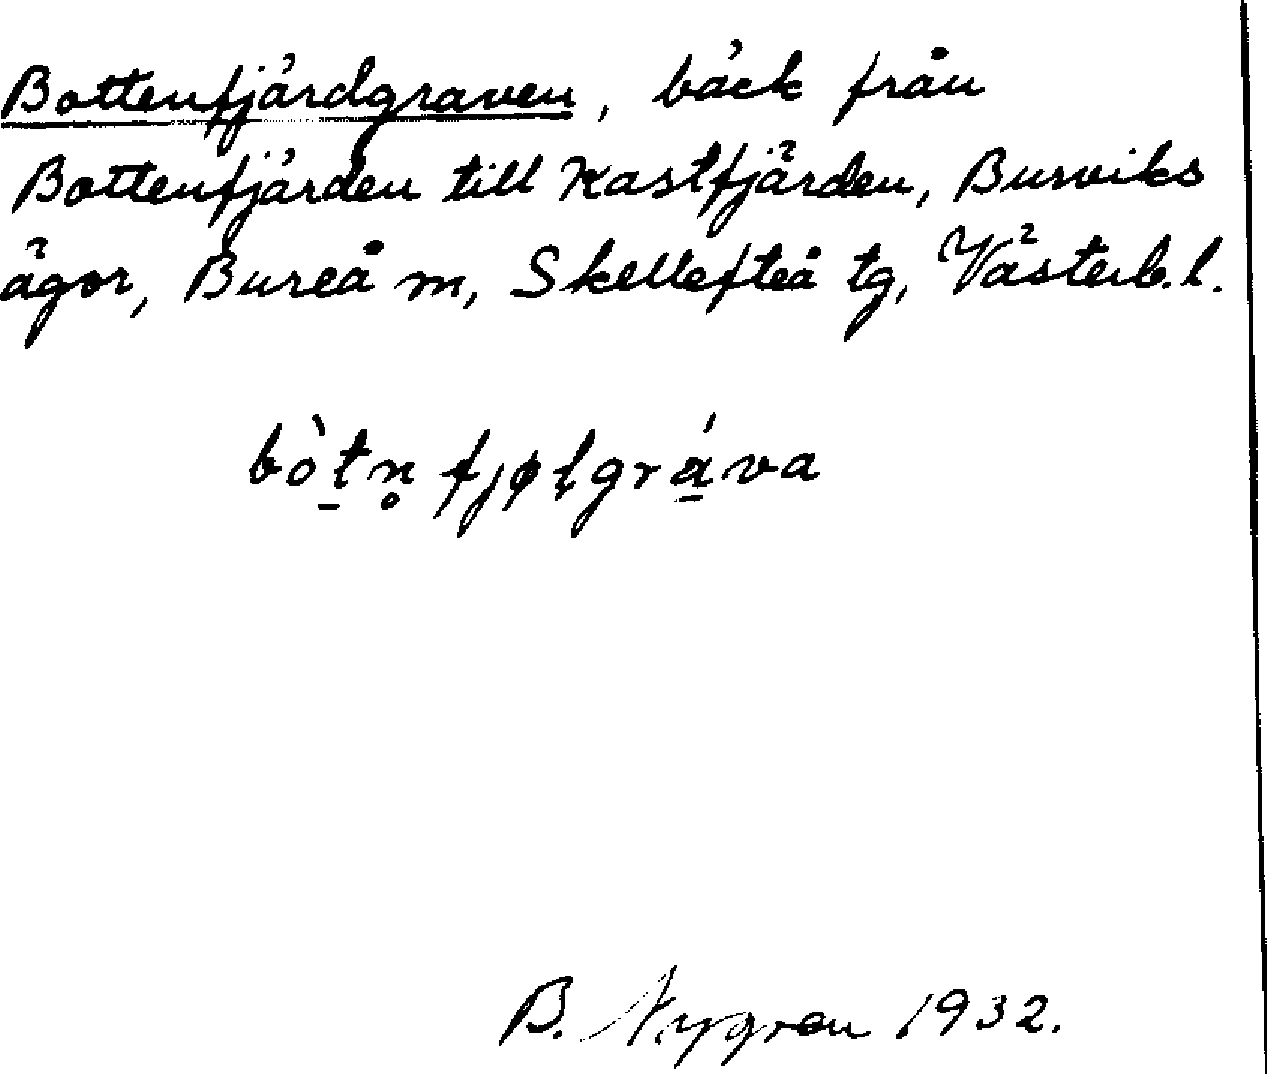 Bottenfjärdgraven, bäck från
Bottenfjärden till Kastfjärden, Burviks
ägor, Bureå m, Skellefteå tg, Västerb.l.
bòt̠n̥ fjøḷgrá̠va
B. Nygren 1932.